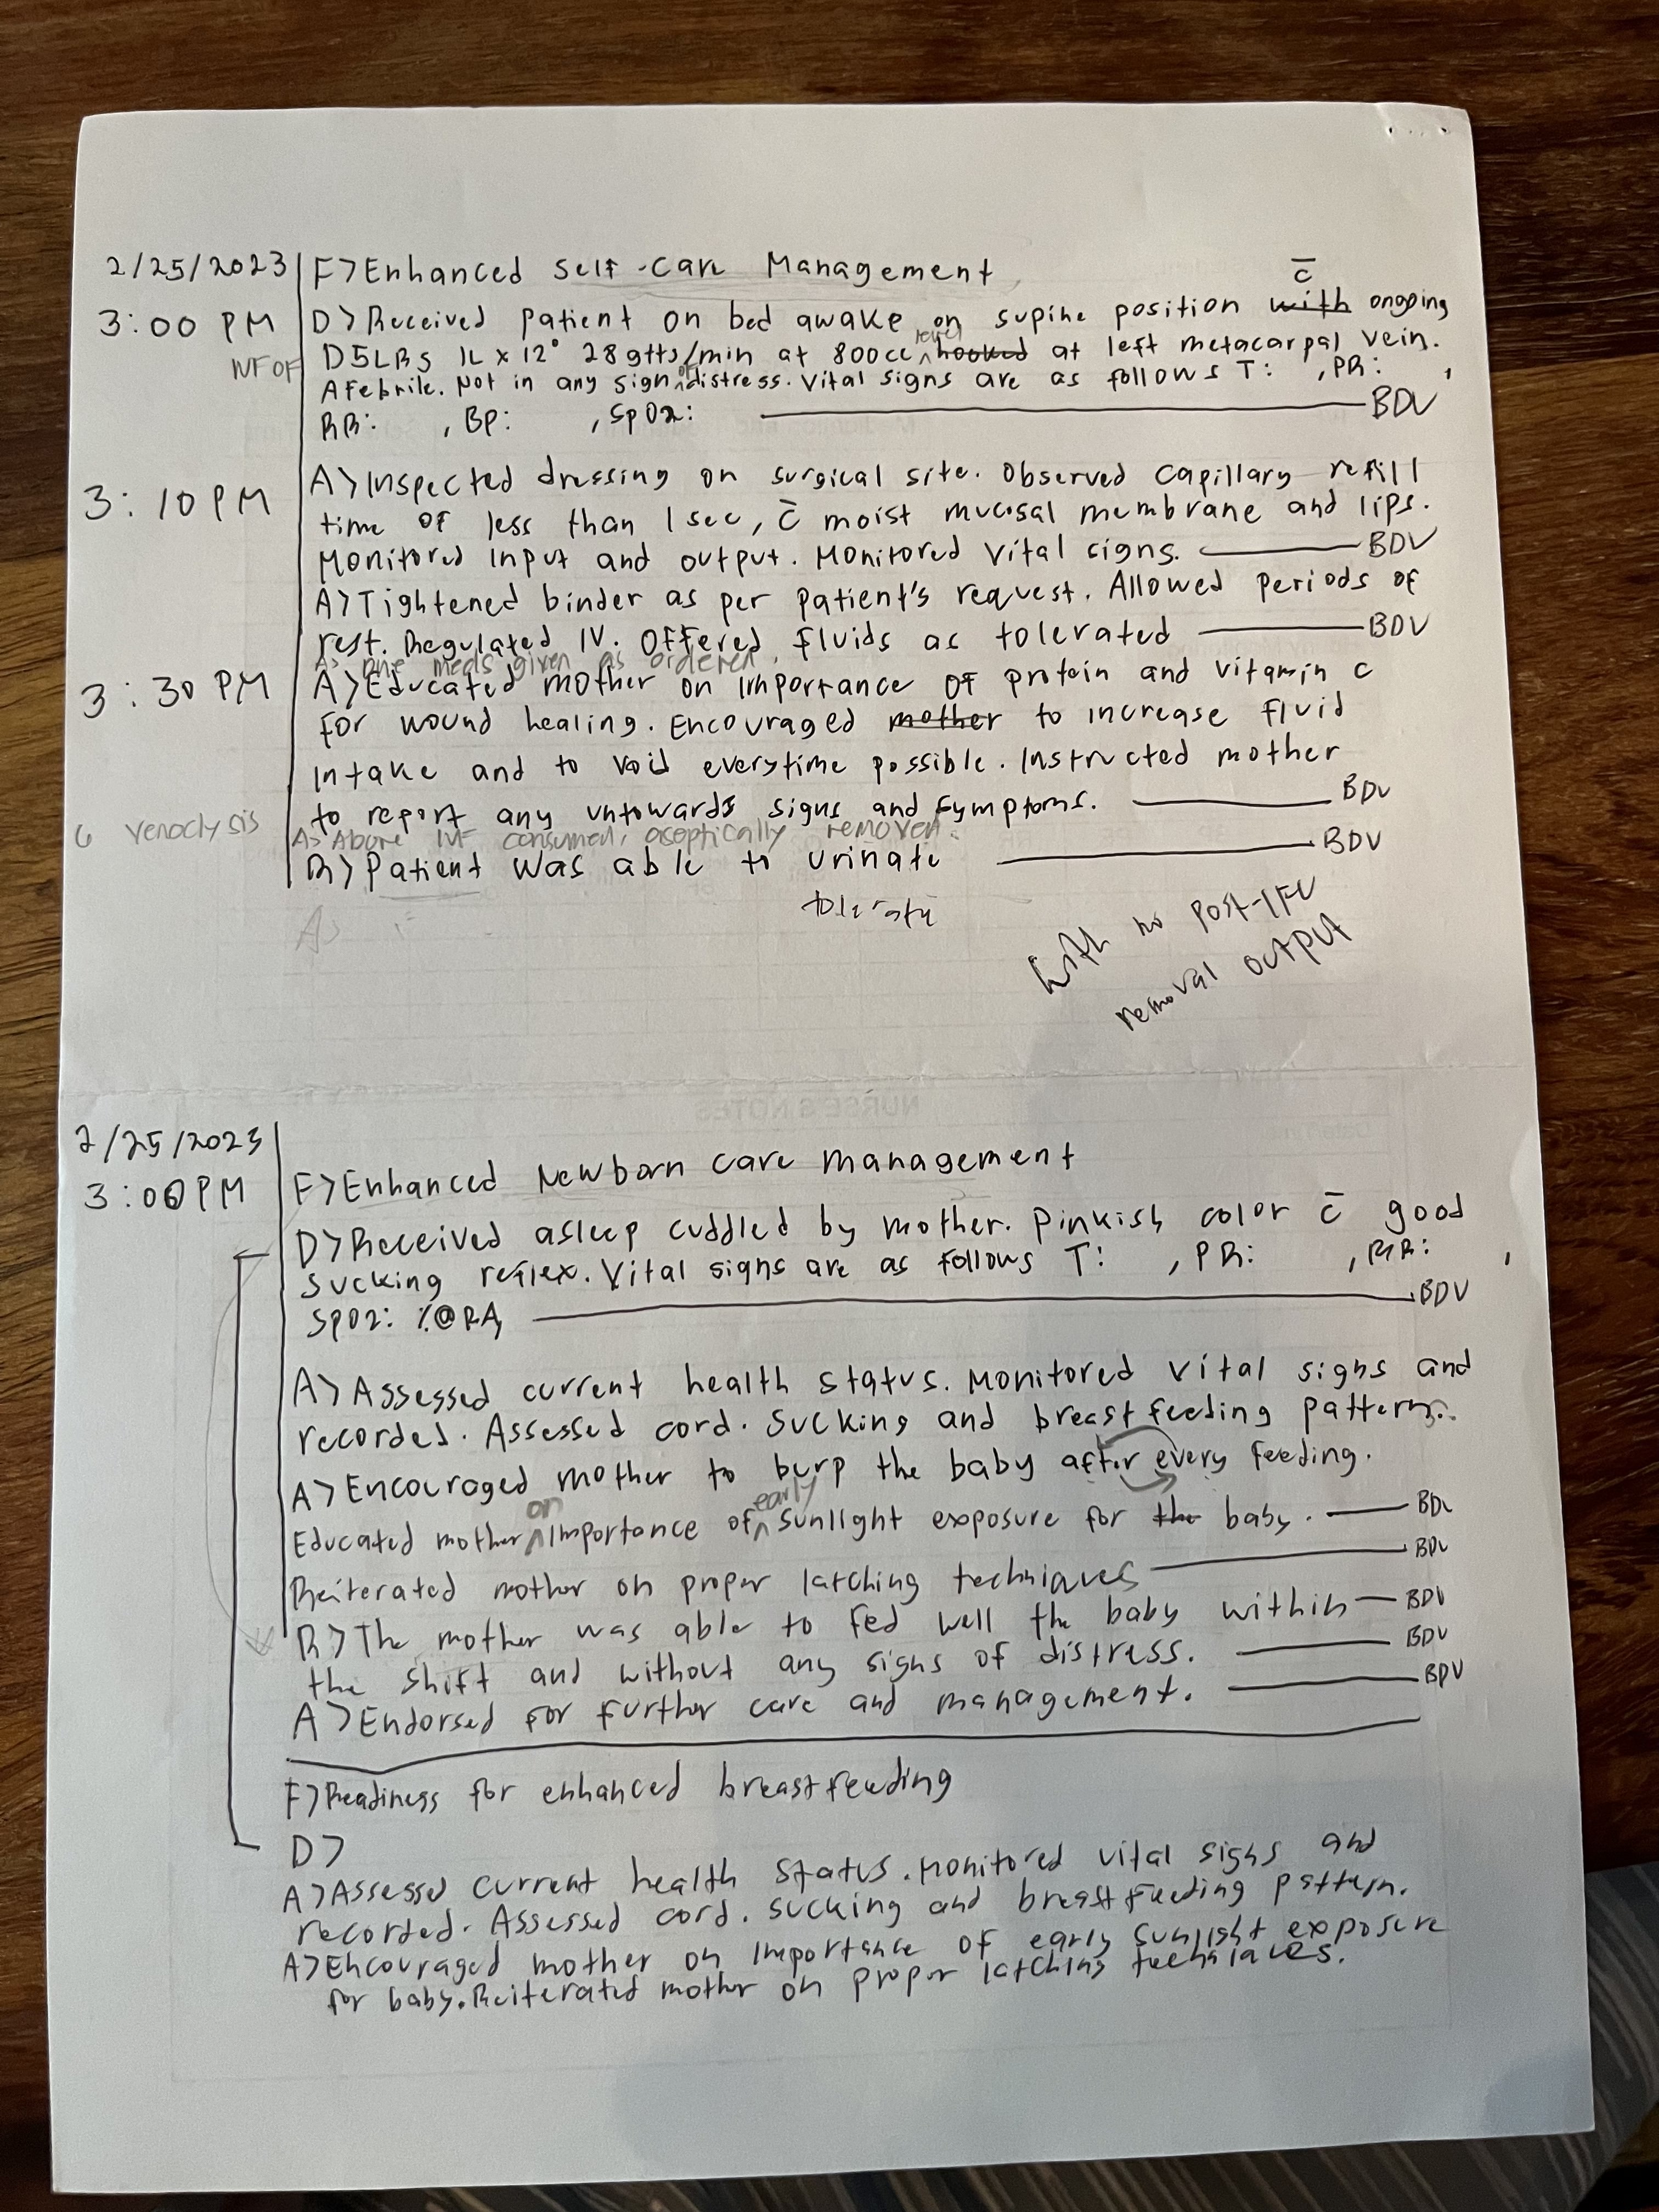 2/25/2023 F>Enhanced Self-Care Management
c̄
3:00 PM D>Received patient on bed awake on supine position with ongoing
level
IVF OF D5LRS 1L x 12° 28gtts/min at 800cc ^ hooked at left metacarpal vein.
of
Afebrile. Not in any sign distress. Vital signs are as follows T: , PR: ,
RR: , BP: , SpO2: BDV
3:10 PM A>Inspected dressing on surgical site. Observed capillary refill
time of less than 1 sec, c̄ moist mucosal membrane and lips.
Monitored input and output. Monitored vital signs. BDV
A>Tightened binder as per patient's request. Allowed periods of
rest. Regulated IV. Offered fluids as tolerated BDV
A> Due meds given as ordered.
3:30 PM A>Educated mother on importance of protein and vitamin c
for wound healing. Encouraged mother to increase fluid
intake and to void everytime possible. Instructed mother
to report any untowards signs and symptoms. BDV
venoclysis A> Above IVF consumed, aseptically removed.
R>Patient was able to urinate BDV
tolerate
A>
with no post-IFC
removal output
NURSE'S NOTES
2/25/2023
3:00PM F>Enhanced Newborn care management
D>Received asleep cuddled by mother. Pinkish color c̄ good
sucking reflex. Vital signs are as follows T: , PR: , RR: ,
SPO2: %@RA BDV
A>Assessed current health status. Monitored vital signs and
recorded. Assessed cord. Sucking and breastfeeding pattern.
A>Encouraged mother to burp the baby after every feeding.
on early
Educated mother ^ importance of ^ sunlight exposure for the baby. BDV
Reiterated mother on proper latching techniques BDV
R>The mother was able to fed well the baby within BDV
the shift and without any signs of distress. BDV
A>Endorsed for further care and management. BDV
F>Readiness for enhanced breastfeeding
D>
A>Assessed current health status. Monitored vital signs and
recorded. Assessed cord. Sucking and breastfeeding pattern.
A>Encouraged mother on importance of early sunlight exposure
for baby. Reiterated mother on proper latching techniques.